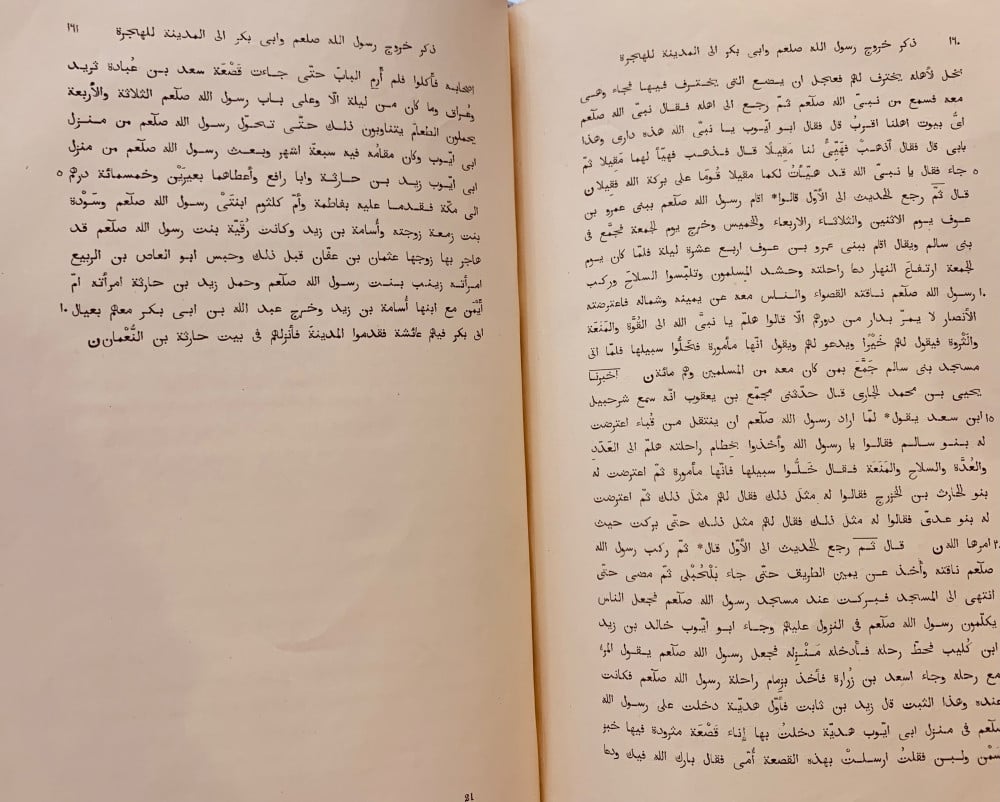 ١٦٠ ذكر خروج رسول الله صلعم وابى بكر الى المدينة للهجرة
نخل لاهله يخترف لهم فعجل ان يضع التى يخترف فيها فجاء وهى
معه فسمع من نبىّ الله صلّعم ثمّ رجع الى اهله فقال نبىّ الله صلّعم
اىّ بيوت اهلنا اقربُ قال فقال ابو ايّوب يا نبىّ الله هذه دارى وهذا
بابى قال فقال آذهبْ فهَيِّئْ لنا مَقِيلًا قال فذهب فهيّأ لهما مَقِيلا ثمّ
٥ جاء فقال يا نبىّ الله قد هيّأتُ لكما مقيلا قُومَا على بركة الله فقِيلان
قال ثمّ رجع للحديث الى الأوّل قالوا* اقام رسول الله صلّعم ببنى عمرو بن
عوف يوم الاثنين والثلاثاء والاربعاء والخميس وخرج يوم الجمعة فجمّع فى
بنى سالم ويقال اقام ببنى عمرو بن عوف اربع عشرة ليلة فلمّا كان يوم
الجمعة ارتفاعَ النهار دعا راحلته وحشد المسلمون وتلبّسوا السلاح وركب
١٠ رسول الله صلّعم ناقته القصواء والناس معه عن يمينه وشماله فاعترضته
الأنصار لا يمرّ بدار من دورهم الّا قالوا هلمّ يا نبىَّ الله الى القُوّة والمَنَعَة
والثَرْوة فيقول لهم خَيْرًا ويدعو لهم ويقول انّها مأمورة فخَلُّوا سبيلها فلمّا اتى
مسجد بنى سالم جَمَّعَ بمن كان معه من المسلمين وهم مائةن اخبرنا
يحيى بن محمد الجارى قال حدّثنى مجمّع بن يعقوب انّه سمع شرحبيل
١٥ ابن سعد يقول* لمّا اراد رسول الله صلّعم ان ينتقل من قُباء اعترضت
له بنو سالم فقالوا يا رسول الله وأخذوا بخطام راحلته هلمّ الى العَدَدِ
والعُدّة والسلاح والمَنَعَة فقال خَلُّوا سبيلها فانّها مأمورة ثمّ اعترضت له
بنو الحارث بن الخزرج فقالوا له مثلَ ذلك فقال لهم مثل ذلك ثمّ اعترضت
له بنو عدىّ فقالوا له مثل ذلك فقال لهم مثل ذلك حتّى بركت حيث
٢٠ امرها اللهن قال ثمّ رجع للحديث الى الأوّل قال* ثمّ ركب رسول الله
صلّعم ناقته وأخذ عن يمين الطريق حتّى جاء بَلْحُبْلى ثمّ مضى حتّى
انتهى الى المسجد فبركت عند مسجد رسول الله صلّعم فجعل الناس
يكلّمون رسول الله صلّعم فى النزول عليهم وجاء ابو ايّوب خالد بن زيد
ابن كُليب فحطّ رحله فأدخله مَنْزِله فجعل رسول الله صلّعم يقول المرء
مع رحله وجاء اسعد بن زُرارة فأخذ بزِمام راحلة رسول الله صلّعم فكانت
عنده وهذا الثبت قال زيد بن ثابت فأوّل هديّة دخلت على رسول الله
صلّعم فى منزل ابى ايّوب هديّة دخلتُ بها إناء قَصْعَة مثرودة فيها خبز
وسَمْن ولبن فقلتُ ارسلتْ بهذه القصعة أُمّى فقال بارك الله فيك ودعا
ذكر خروج رسول الله صلعم وابى بكر الى المدينة للهجرة ١٦١
اصحابه فأكلوا فلم أَرِمِ البابَ حتّى جاءت قَصْعَة سعد بن عُبادة ثريد
وعُراق وما كان من ليلة الّا وعلى باب رسول الله صلّعم الثلاثة والأربعة
يحملون الطعام يتناوبون ذلك حتّى تحوّل رسول الله صلّعم من منزل
ابى ايّوب وكان مقامُه فيه سبعة اشهر وبعث رسول الله صلّعم من منزل
ابى ايّوب زيد بن حارثة وابا رافع وأعطاهما بعيرَيْن وخمسمائة درهم ٥
الى مكّة فقدما عليه بفاطمة وأمّ كلثوم ابنتَىْ رسول الله صلّعم وسَوْدة
بنت زمعة زوجته وأُسامة بن زيد وكانت رُقَيّة بنت رسول الله صلّعم قد
هاجر بها زوجها عثمان بن عفّان قبل ذلك وحبس ابو العاص بن الربيع
امرأته زينب بنت رسول الله صلّعم وحمل زيد بن حارثة امرأته امّ
أَيْمَن مع ابنها أُسامة بن زيد وخرج عبد الله بن ابى بكر معهم بعيال ١٠
ابى بكر فيهم عائشة فقدموا المدينةَ فأنزلهم فى بيت حارثة بن النُّعْمانن
21